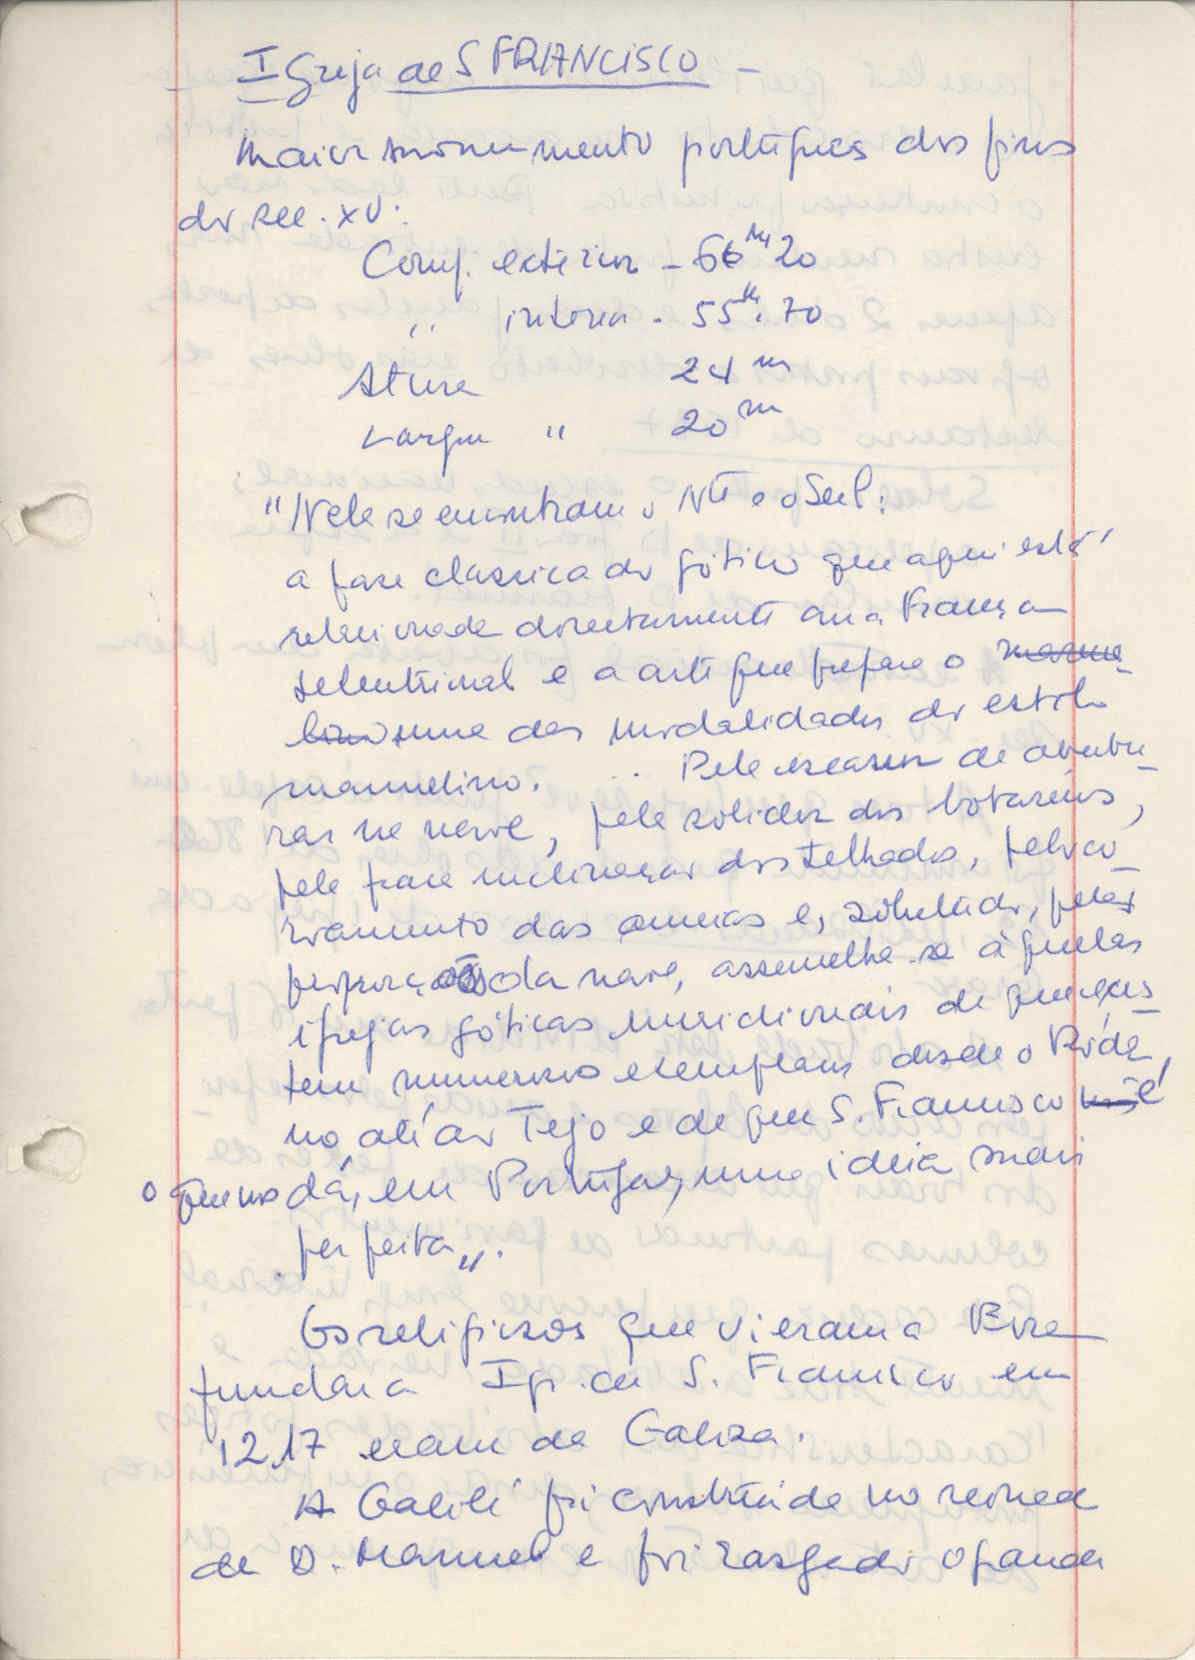 Igreja de S FRANCISCO -
Maior monumento português dos fins
do sec. XV:
Comp. exterior - 66m 20
" interior - 55m. 70
Altura 24 m
Largura " 20 m
"Nele se encontram o Nte e o Sul:
a fase classica do gótico que aqui está
relacionada directamente com a França
setentrional e a arte que prepara o
uma das modalidades do estilo
manuelino. .. Pela escassez de abertu_
ras na nave, pela solidez dos botaréus,
pela fraca inclinação dos telhados, pelo co_
roamento das ameias e, sobretudo, pelas
proporções da nave, assemelha-se àquelas
igrejas góticas meridionais de que exis_
tem numerosos exemplares desde o Róda_
no até ao Tejo e de que S. Francisco é
o que nos dá, em Portugal, uma ideia mais
perfeita".
Os religiosos que vieram a Evora
fundar a Igr. de S. Francisco em
1217 eram da Galiza.
A Galilé foi construida no reinado
de D. Manuel e foi rasgado o grande